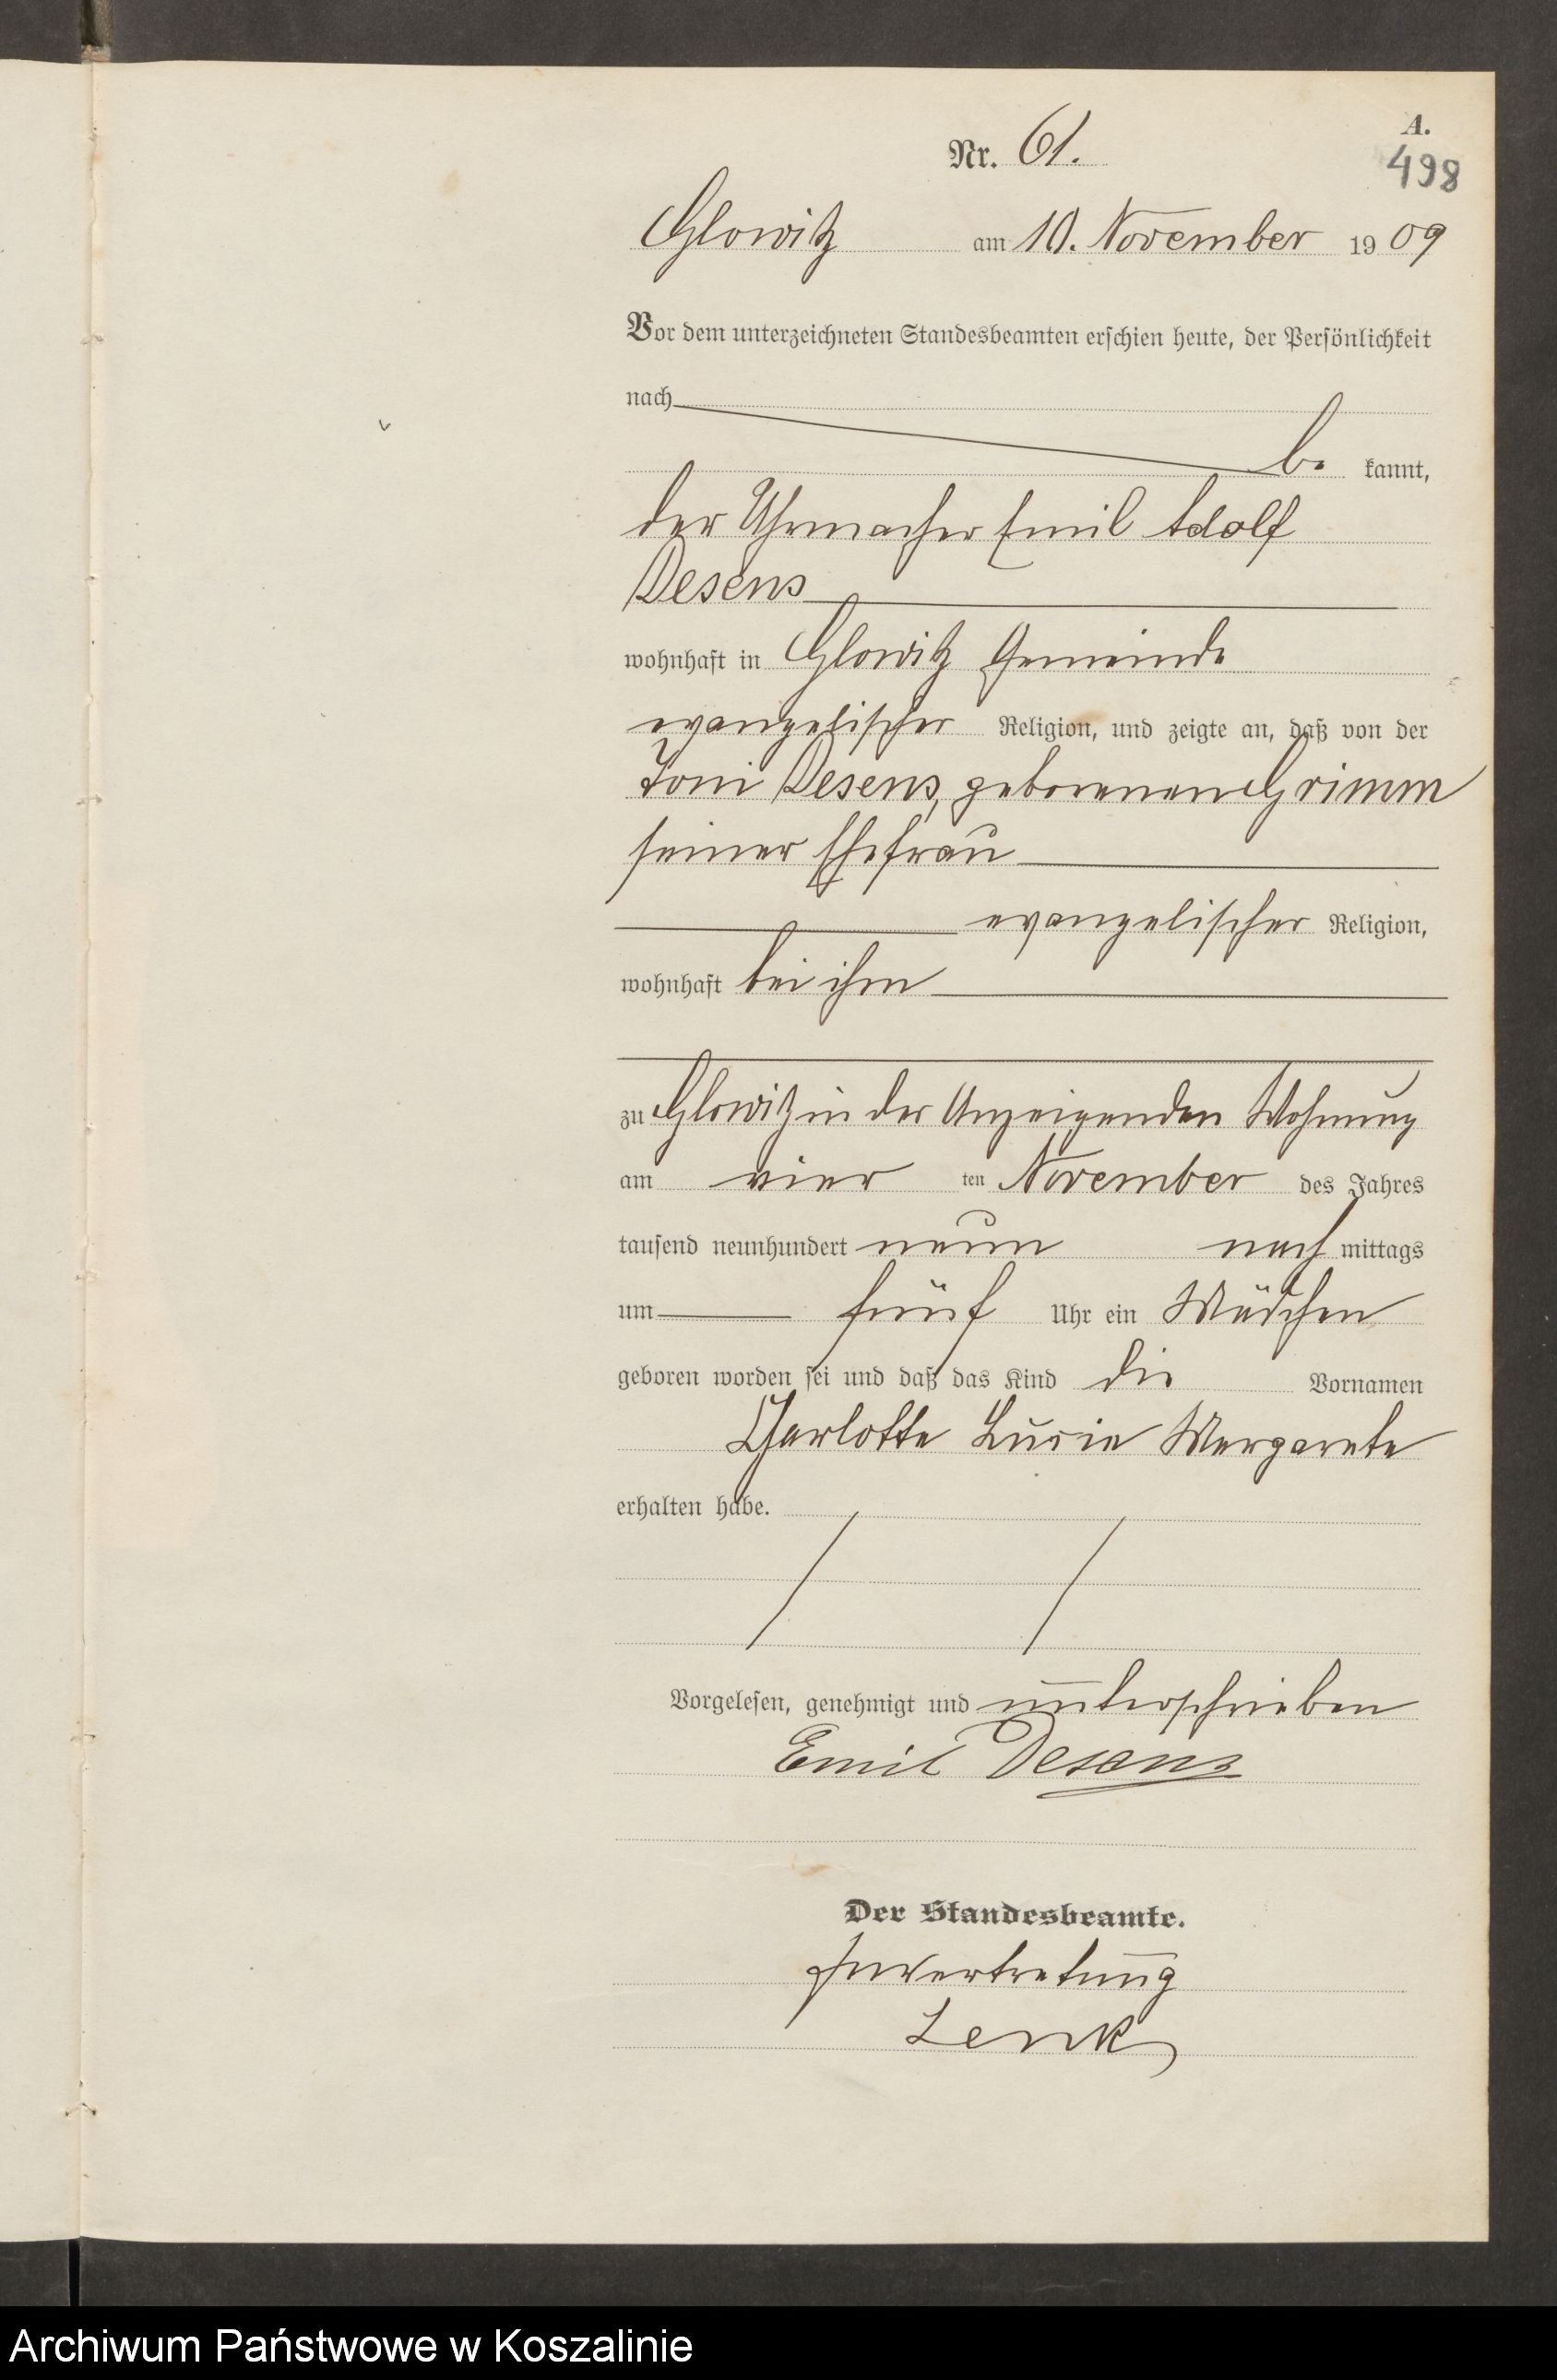 A.
Nr. 61.
498
Glowitz am 10. November 1909
Vor dem unterzeichneten Standesbeamten erschien heute, der Persönlichkeit
nach
be kannt,
der Uhrmacher Emil Adolf
Desens
wohnhaft in Glowitz Gemeinde
evangelischer Religion, und zeigte an, daß von der
Toni Desens, geborenen Grimm
seiner Ehefrau
evangelischer Religion,
wohnhaft bei ihm
zu Glowitz in der Anzeigenden Wohnung
am vier ten November des Jahres
tausend neunhundert neun nach mittags
um fünf Uhr ein Mädchen
geboren worden sei und daß das Kind die Vornamen
Charlotte Lucie Margarete
erhalten habe.
Vorgelesen, genehmigt und unterschrieben
Emil Desens
Der Standesbeamte.
In Vertretung
Lenk
Archiwum Państwowe w Koszalinie